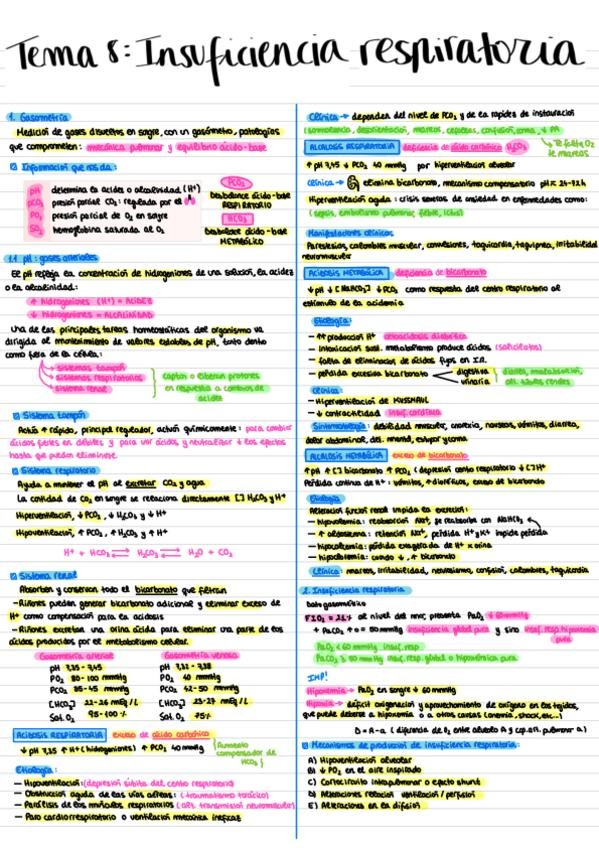 Tema 8: Insuficiencia respiratoria
1. Gasometría
Medición de gases disueltos en sagre, con un gasómetro, patologías
que comprometen: mecánica pulmonar y equilibrio ácido-base
Información que nos da:
pH determina la acidez o alcalinidad (H+)
pCO2 presión parcial CO2: regulada por el
PO2 presión parcial de O2 en sangre
SO2 hemoglobina saturada al O2
PCO2
Desbalance ácido-base
RESPIRATORIO
HCO3
Desbalance ácido-base
METABÓLICO
1.1 pH: gases arteriales
El pH refleja la concentración de hidrogeniones de una solución, la acidez
o la alcalinidad:
↑ hidrogeniones (H+) = ACIDEZ
↓ hidrogeniones = ALCALINIDAD
Una de las principales tareas homeostáticas del organismo va
dirigida al mantenimiento de valores estables de pH, tanto dentro
como fuera de la célula:
sistemas tampón
sistemas respiratorios
sistema renal
captan o liberan protones
en respuesta a cambios de
acidez
Sistema tampón
Actúa ↑ rápido, principal regulador, actúan químicamente: para cambiar
ácidos fuertes en débiles y para unir ácidos y neutralizar ↓ los efectos
hasta que puedan eliminarse
Sistema respiratorio
Ayuda a mantener el pH al excretar CO2 y agua
La cantidad de CO2 en sangre se relaciona directamente [] H2CO3 y H+
Hiperventilación, ↓ PCO2, ↓ H2CO3 y ↓ H+
Hipoventilación, ↑ PCO2, ↑ H2CO3 y ↑ H+
H+ + HCO3 ⇌ H2CO3 ⇌ H2O + CO2
Sistema renal
Absorben y conservan todo el bicarbonato que filtran
- Riñones pueden generar bicarbonato adicional y eliminar exceso de
H+ como compensación para la acidosis
- Riñones excretan una orina ácida para eliminar una parte de los
ácidos producidos por el metabolismo celular.
Gasometría arterial
pH 7,35 - 7,45
PO2 80 - 100 mmHg
PCO2 35-45 mmHg
[HCO3] 22-26 mEq/L
Sat. O2 95-100 %
Gasometría venosa
pH 7,31 - 7,38
PO2 40 mmHg
PCO2 42-50 mmHg
[HCO3] 23-27 mEq/L
Sat. O2 75%
ACIDOSIS RESPIRATORIA exceso de ácido carbónico
↓ pH 7,35 ↑ H+ (hidrogeniones) ↑ PCO2 40 mmHg
Aumento
compensador de
HCO3
Etiología:
- Hipoventilación: (depresión súbita del centro respiratorio)
- Obstrucción aguda de las vías aéreas: (traumatismo torácico)
- Parálisis de los músculos respiratorios (alt. transmisión neuromuscular)
- Paro cardiorrespiratorio o ventilación mecánica ineficaz
Clínica → dependen del nivel de PCO2 y de la rapidez de instauración
(somnolencia, desorientación, mareos, cefaleas, confusión, coma, ↓ PA
Te falta O2
te mareas
ALCALOSIS RESPIRATORIA deficiencia de ácido carbónico H2CO3
↑ pH 7,45 ↓ PCO2 40 mmHg por hiperventilación alveolar
Clínica → elimina bicarbonato, mecanismo compensatorio pH ≈ 24-72h
Hiperventilación aguda: crisis severas de ansiedad en enfermedades como:
(sepsis, embolismo pulmonar, fiebre, ictus)
Manifestaciones clínicas
Parestesias, calambres muscular, convulsiones, taquicardia, taquipnea, irritabilidad
neuromuscular
ACIDOSIS METABÓLICA deficiencia de bicarbonato
↓ pH ↓ [NaHCO3] ↓ PCO2 como respuesta del centro respiratorio al
estímulo de la acidemia
Etiología:
- ↑↑ producción H+ cetoacidosis diabética
- intoxicación sust. metabolismo produce ácidos (salicilatos)
- falta de eliminación de ácidos fijos en I.R.
- pérdida excesiva bicarbonato
digestiva
urinaria
diarrea, malabsorción,
alt. túbulos renales
Clínica:
- Hiperventilación de KUSSMAUL
- ↓ contractilidad insuf. cardíaca
Sintomatología: debilidad muscular, anorexia, nauseas, vómitos, diarrea,
dolor abdominal, det. mental, estupor y coma
ALCALOSIS METABÓLICA exceso de bicarbonato
↑ pH ↑ [] bicarbonato ↑ PCO2 (depresión cento respiratorio ↓ [] H+
Pérdida continua de H+: vómitos, ↑ diuréticos, exceso de bicarbonato
Etiología
Alteración función renal impida la excreción:
- hipovolemia: reabsorción Na+, se reabsorbe con NaHCO3
- ↑ aldosterona: retención Na+, pérdida H+ y K+ impide pérdida
- hipocalcemia: pérdida exagerada de H+ x orina
- hipocloremia: cuando ↓, ↑ bicarbonato
Clínica: mareos, irritabilidad, nerviosismo, confusión, calambres, taquicardia
2. Insuficiencia respiratoria
Dato gasométrico
FIO2 = 21% al nivel del mar, presenta PaO2 ↓ 60mmHg
+ PaCO2 = o 50 mmHg insuficiencia global pura y sino insuf. resp. hipoxemia
pura
PaO2 < 60 mmHg insuf. resp
PaCO2 ≥ 50 mmHg insuf. resp. global o hipercápnica pura
IMP!
Hipoxemia → PaO2 en sangre ↓ 60 mmHg
Hipoxia → déficit oxigenación y aprovechamiento de oxígeno en los tejidos,
que puede deberse a hipoxemia o a otras causas (anemia, shock, etc...)
D = A-a (diferencia de O2 entre alveolo A y cap. art. pulmonar a)
Mecanismos de producción de insuficiencia respiratoria:
A) Hipoventilación alveolar
B) ↓ PO2 en el aire inspirado
C) Cortocircuito intrapulmonar o efecto shunt
D) Alteraciones relación ventilación / perfusión
E) Alteraciones en la difusión